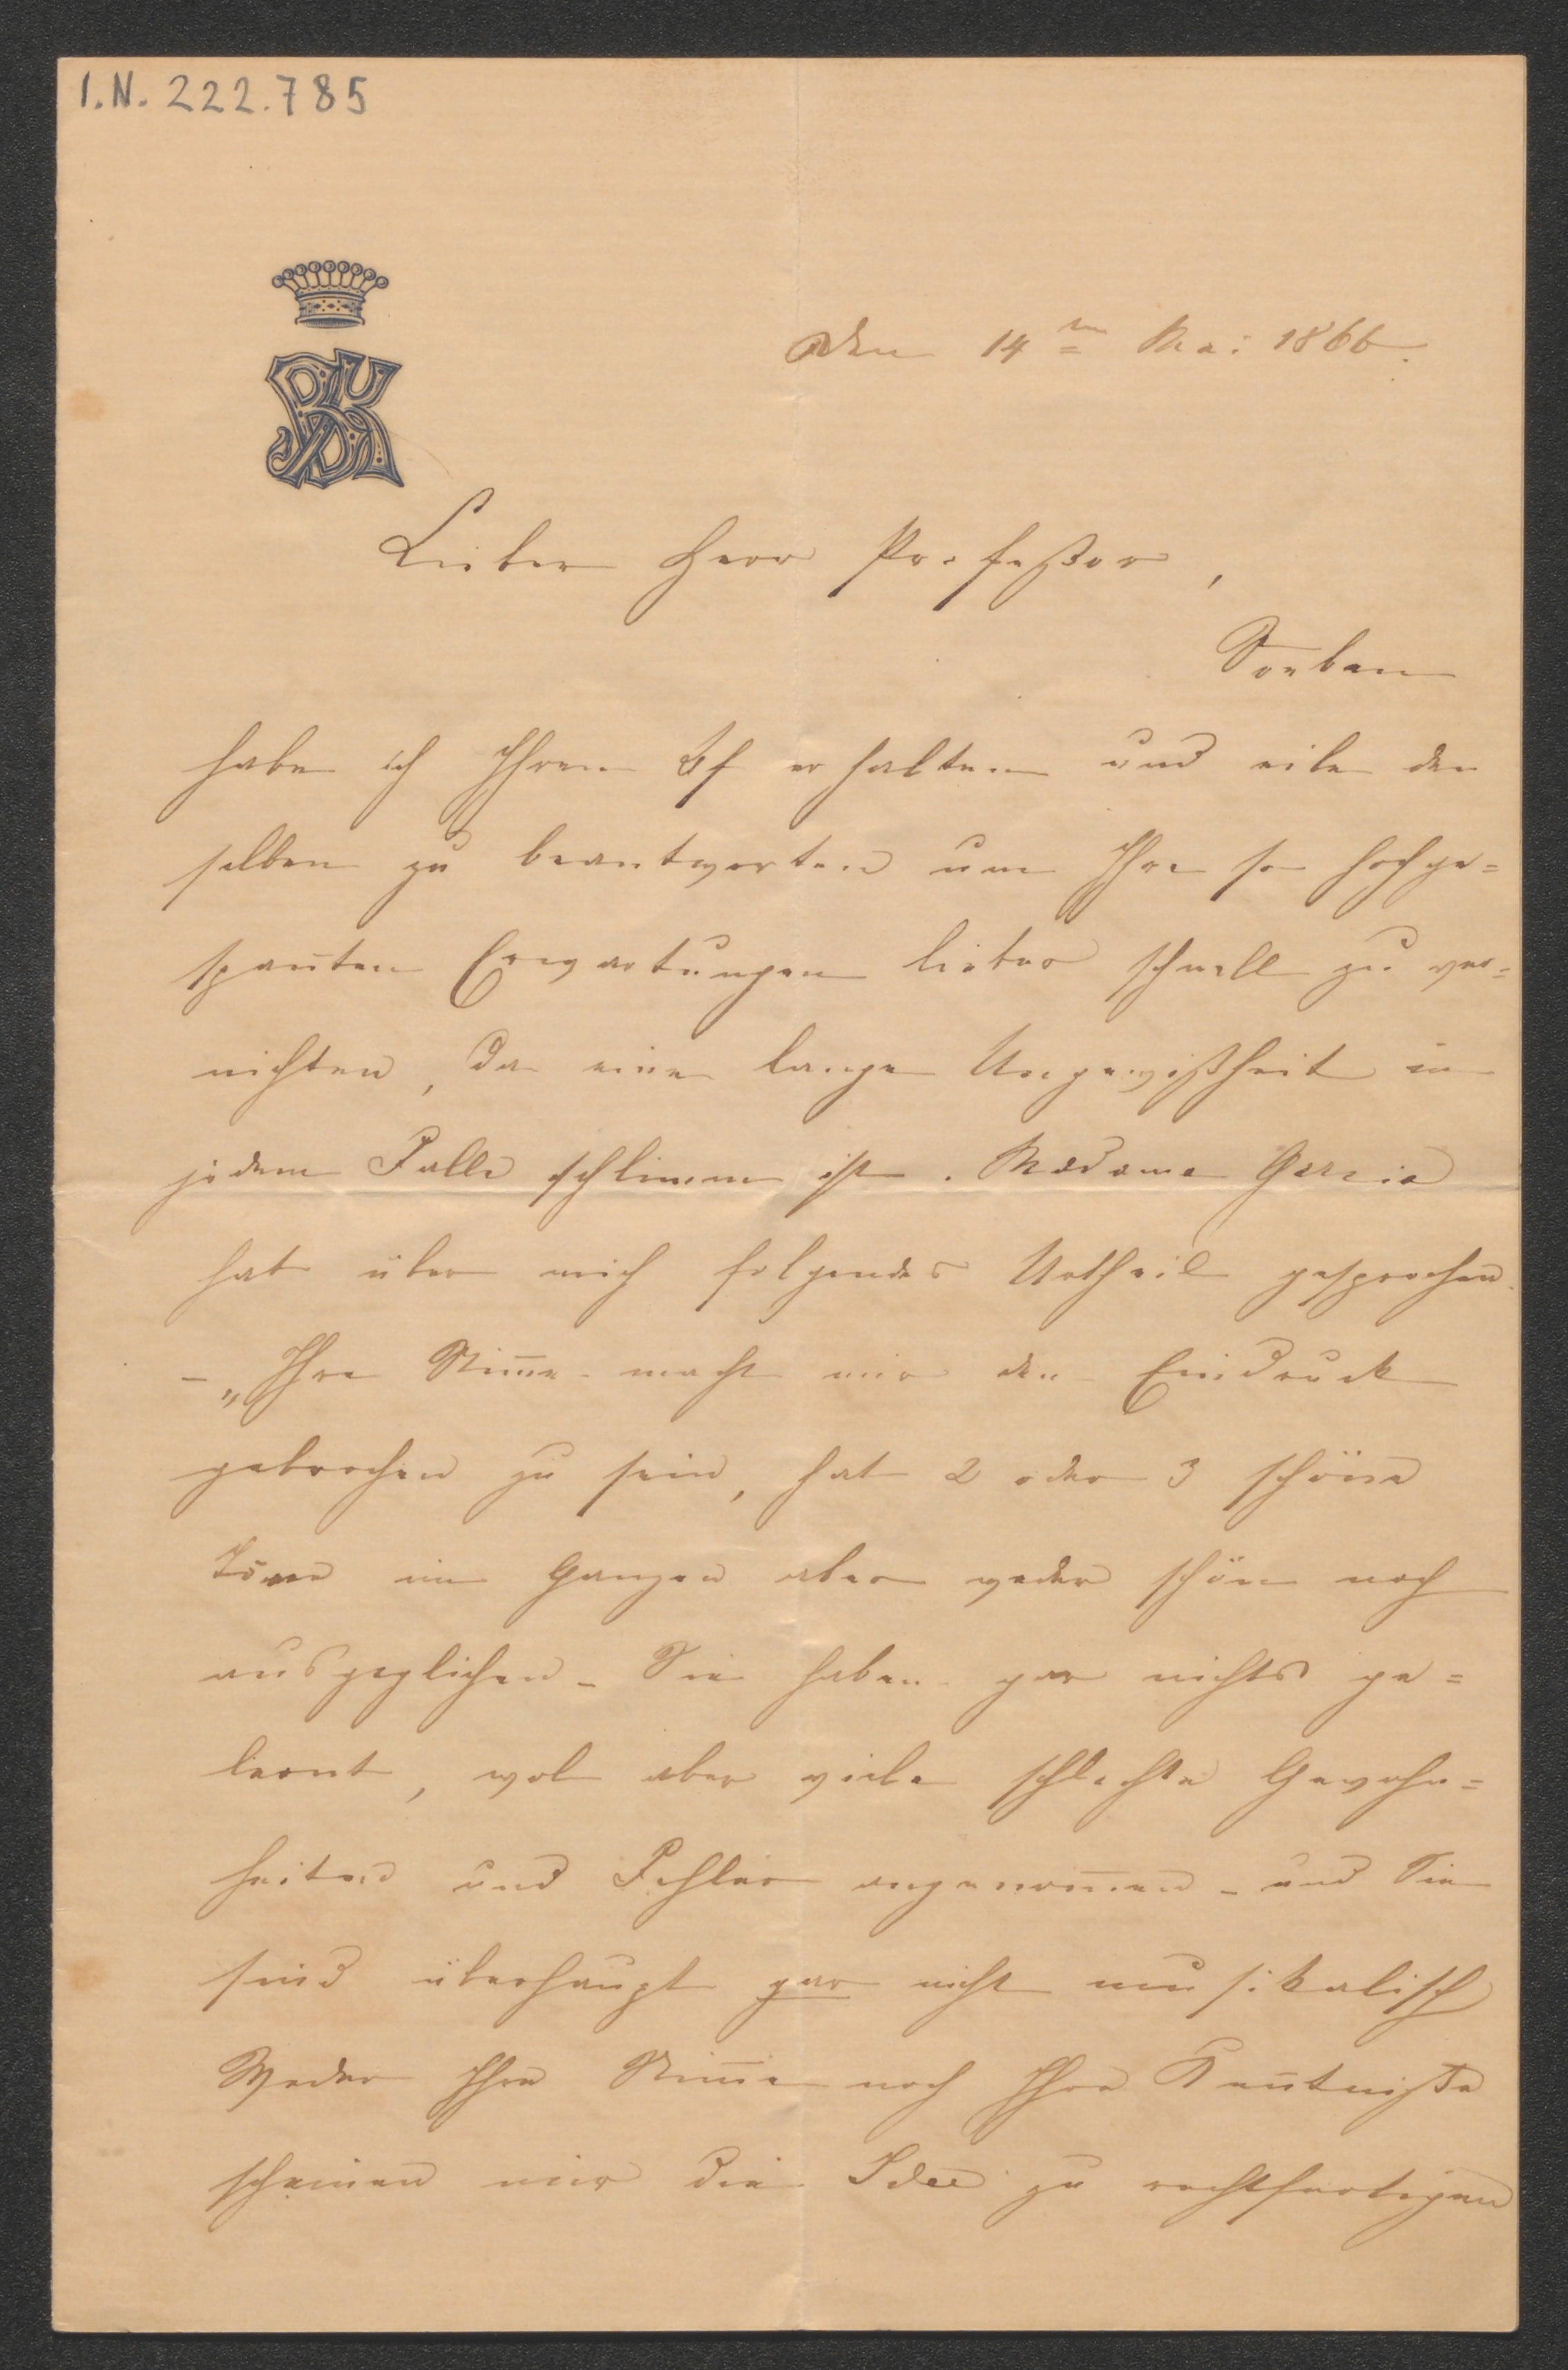 I.N. 222.785
BK
Den 14ten Mai 1866.
Lieber Herr Profeßor,
Soeben
habe ich Ihren Bf erhalten und eile den
selben zu beantworten um Ihre so hochge=
span̄ten Erwartungen lieber schnell zu ver=
nichten, da eine lange Ungewißheit in
jedem Falle schlimm ist. Madame Garcia
hat über mich folgendes Urtheil gesprochen.
– „Ihre Stim̄e macht mir den Eindruck
gebrochen zu sein, hat 2 oder 3 schöne
Töne im Ganzen aber weder schön noch
ausgeglichen – Sie haben gar nichts ge=
lernt, wol aber viele schlechte Gewohn=
heiten und Fehler angenom̄en – und Sie
sind überhaupt gar nicht musikalisch
Weder Ihre Stim̄e noch Ihre Ken̄tniße
scheinen mir die Idee zu rechtfertigen